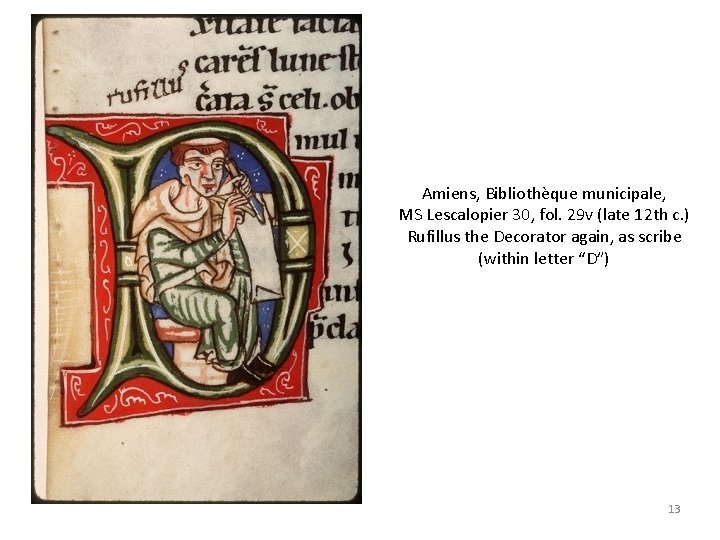 rufillus
carēt̄ tunc
cata ḡ celi. ob
mul
m
p̄cla
Amiens, Bibliothèque municipale,
MS Lescalopier 30, fol. 29v (late 12 th c. )
Rufillus the Decorator again, as scribe
(within letter “D”)
13